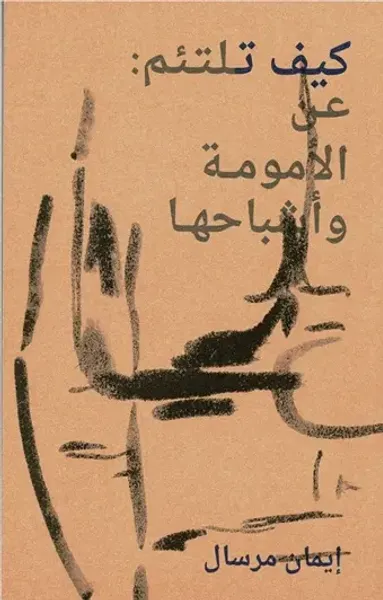 كيف تلتئم:
عن
الأمومة
وأشباحها
إيمان مرسال